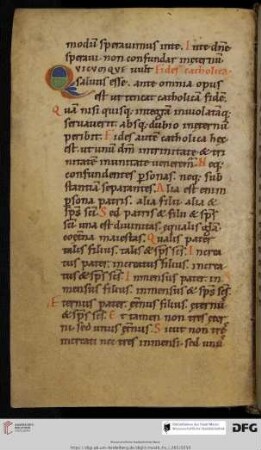 modū speravimus inte. Inte dne
speravi. non confundar ineternū.
Quicunque vult Fides catholica
salvus esse. ante omnia opus
est ut teneat catholicā fidē.
Quā nisi quisq; integrā inviolatāq;
servaverit. absq; dubio ineternū
peribit. Fides autē catholica hec
est. ut unū dm̄ intrinitate & tri
nitatē inunitate veneremˀ. Neq;
confundentes psonas. neq; sub
stantiā separantes. Alia est enim
psona patris. alia filii. alia &
sp̄s sc̄i. Sed patris & filii & sp̄s
sc̄i una est divinitas. equalis gl̄a.
coeterna maiestas. Qualis pater.
talis filius. talis & sp̄s sc̄s. Increa
tus pater. increatus filius. increa
tus & sp̄s sc̄s. Inmensus pater. in
mensus filius. inmensus & sp̄s sc̄s.
Eternus pater. eternus filius. eternˀ
& sp̄s sc̄s. Et tamen non tres eter
ni. sed unus eternus. Sicut non tres
increati nec tres inmensi. sed unus
DFG